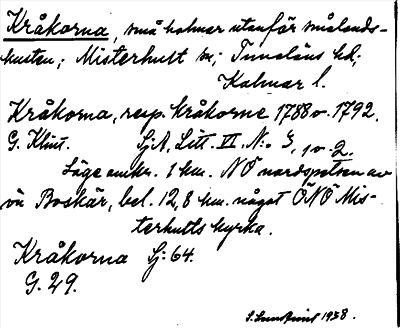 Kråkorna, små holmar utanför smålands-
kusten; Misterhult sn; Tunaläns hd;
Kalmar l.
Kråkorna, resp. kråkorne 1788 o. 1792.
G. Klint. SjA, Litt. VI, N:o 3, 1 o 2.
Läge omkr. 1 km. NÖ nordspetsen av
ön Boskär, bel. 12,8 km. något ÖNÖ Mis-
terhults kyrka.
Kråkorna Sj: 64.
G. 29.
1938.